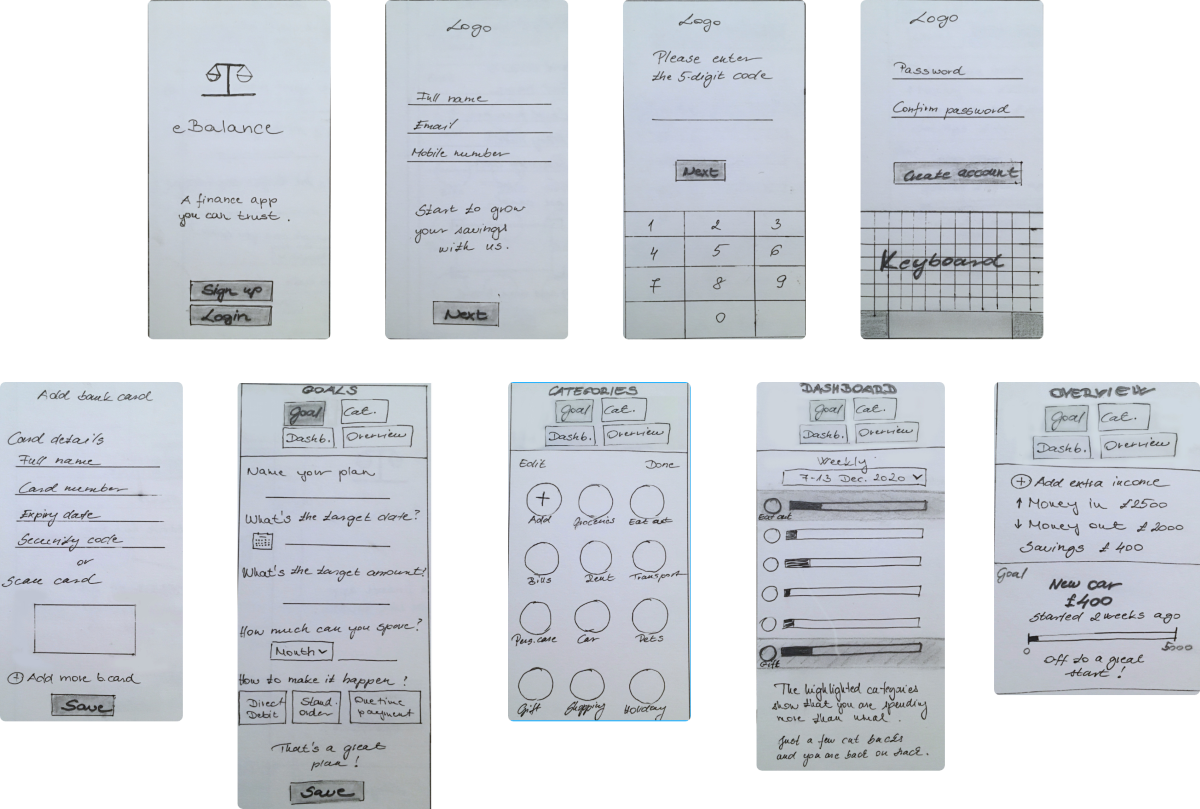 eBalance
A finance app
you can trust.
Sign up
Login
Logo
Full name
Email
Mobile number
Start to grow
your savings
with us.
Next
Logo
Please enter
the 5-digit code
Next
1 2 3
4 5 6
7 8 9
0
Logo
Password
Confirm password
Create account
Keyboard
Add bank card
Card details
Full name
Card number
Expiry date
Security code
or
Scan card
+ Add more b.card
Save
GOALS
Goal Cat.
Dashb. Overview
Name your plan
What's the target date?
What's the target amount?
How much can you spare?
Month
How to make it happen!
Direct Debit
Stand. order
One time payment
That's a great
plan!
Save
CATEGORIES
Goal Cat.
Dashb. Overview
Edit Done
+
Add Groceries Eat out
Bills Rent Transport
Pers. care Car Pets
Gift Shopping Holiday
DASHBOARD
Goal Cat.
Dashb. Overview
Weekly
7-13 Dec. 2020
Eat out
Gift
The highlighted categories
show that you are spending
more than usual.
Just a few cut backs
and you are back on track.
OVERVIEW
Goal Cat.
Dashb. Overview
+ Add extra income
↑ Money in £2500
↓ Money out £2000
Savings £400
Goal
New car
£400
Started 2 weeks ago
0 5000
Off to a great
start!